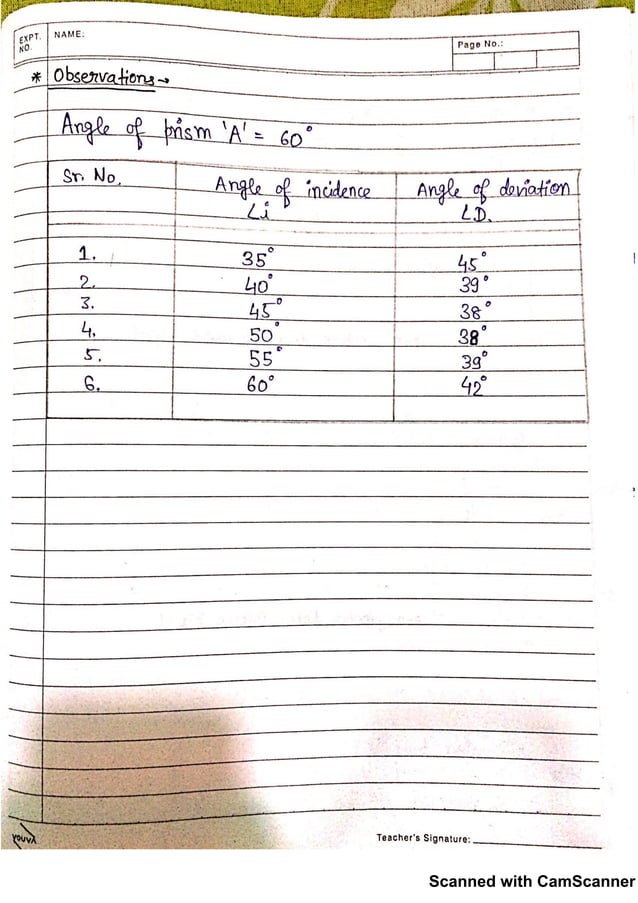 EXPT. NO. NAME:
Page No.:
* Observations→
Angle of prism 'A' = 60°
Sr. No. Angle of incidence ∠i Angle of deviation ∠D.
1. 35° 45°
2. 40° 39°
3. 45° 38°
4. 50° 38°
5. 55° 39°
6. 60° 42°
YOUVA
Teacher's Signature:
Scanned with CamScanner